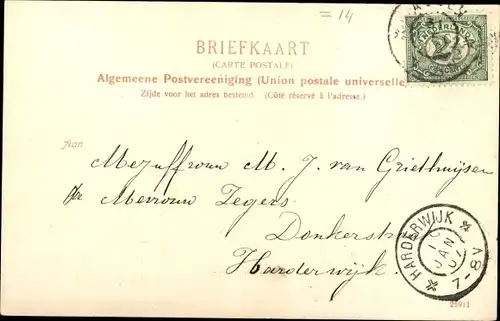 = 14
BRIEFKAART
(CARTE POSTALE)
Algemeene Postvereeniging (Union postale universelle)
Zijde voor het adres bestemd. (Côté réservé à l'adresse.)
Aan
Mejuffrouw M. J. van Griethuijsen
Mevrouw Zegers
Donkerstr
Harderwijk.
HARDERWIJK
JAN
7-8V